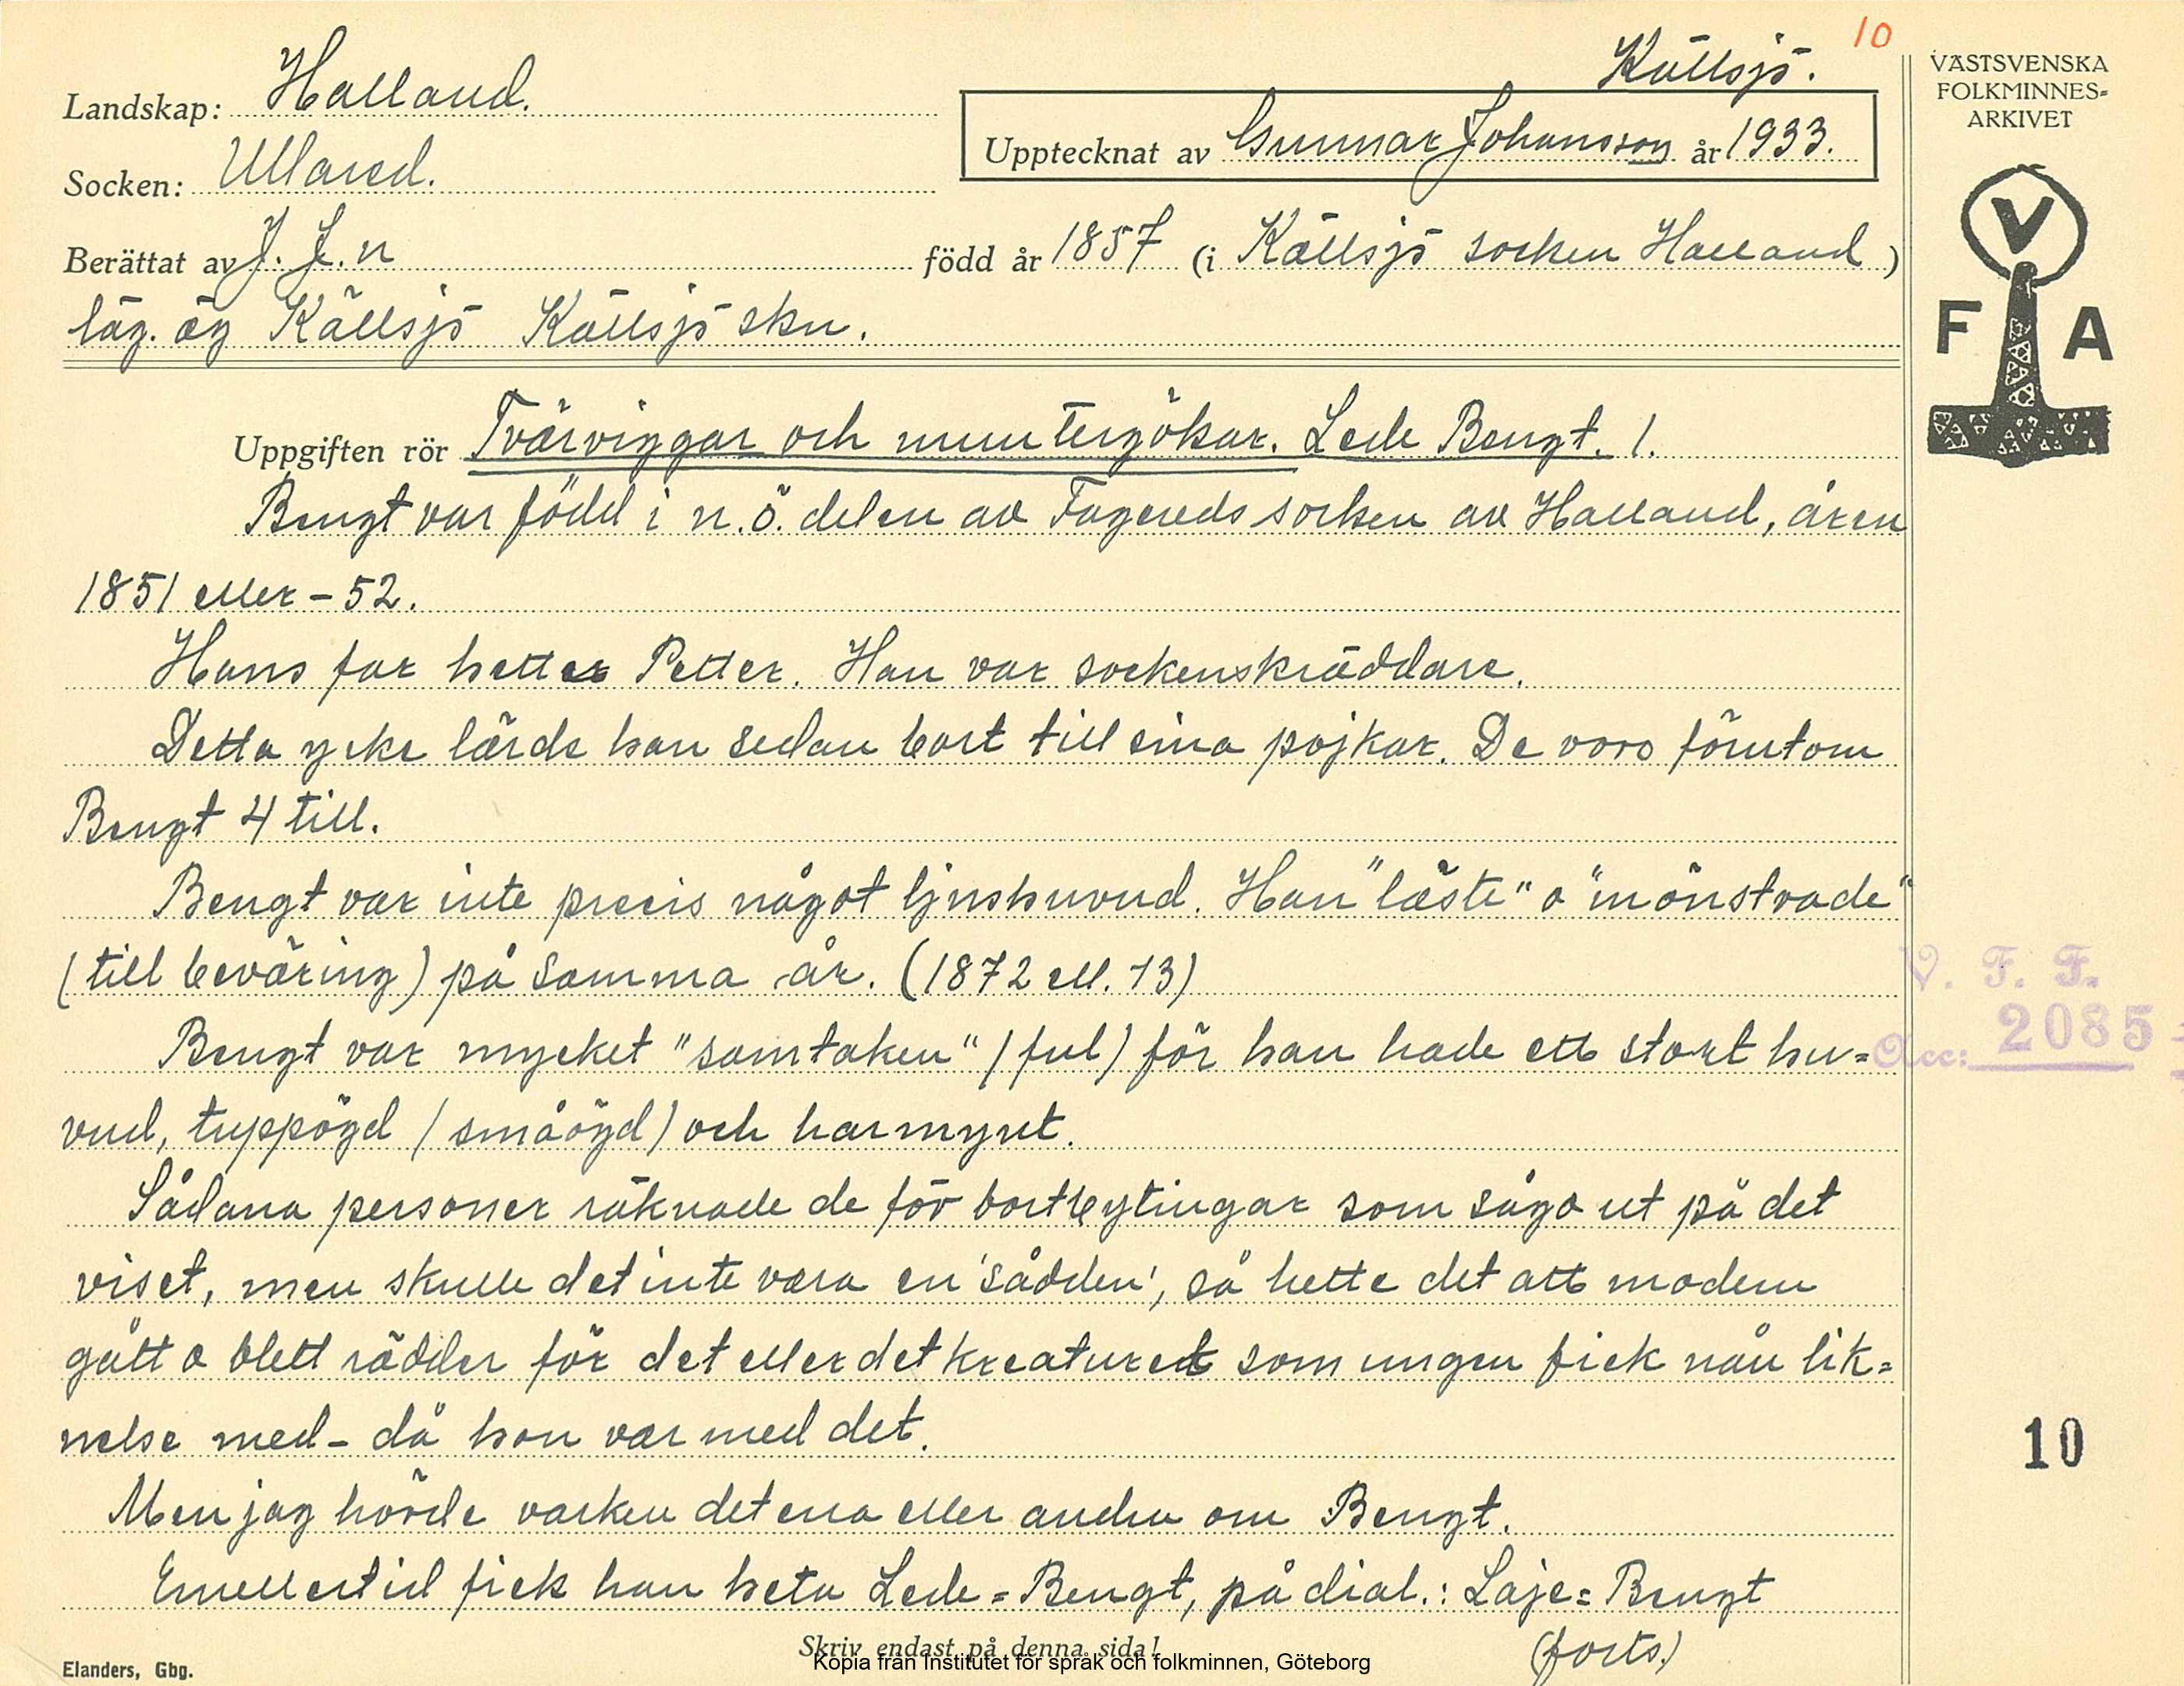 10
Källsjö.
Landskap: Halland.
Upptecknat av Gunnar Johansson år 1933.
Socken: Ullared.
Berättat av J. J. n född år 1857 (i Källsjö socken Halland)
läg. äg Källsjö Källsjö skn.
VÄSTSVENSKA
FOLKMINNES=
ARKIVET
V
F A
Uppgiften rör Tvärviggar och muntergökar. Lede Bengt. 1.
Bengt var född i n.ö. delen av Fagereds socken av Halland, åren
1851 eller - 52.
Hans far hette Petter. Han var sockenskräddare.
Detta yrke lärde han sedan bort till sina pojkar. De voro förutom
Bengt 4 till.
Bengt var inte precis något ljushuvud. Han "läste" o "mönstrade"
(till beväring) på samma år. (1872 ell. 73)
Bengt var mycket "samtaken" (ful) för han hade ett stort hu=
vud, tuppögd (småögd) och harmynt.
Sådana personer räknade de för bortbytingar som sågo ut på det
viset, men skulle det inte vara en 'sådden', så hette det att modern
gått o blett rädder för det eller det kreaturet som ungen fick nån lik=
nelse med - då hon var med det.
Men jag hörde varken det ena eller andra om Bengt.
Emellertid fick han heta Lede=Bengt, på dial.: Laje=Bengt
(forts.)
V. F. F.
Acc: 2085
10
Skriv endast på denna sida!
Elanders, Gbg.
Kopia från Institutet för språk och folkminnen, Göteborg